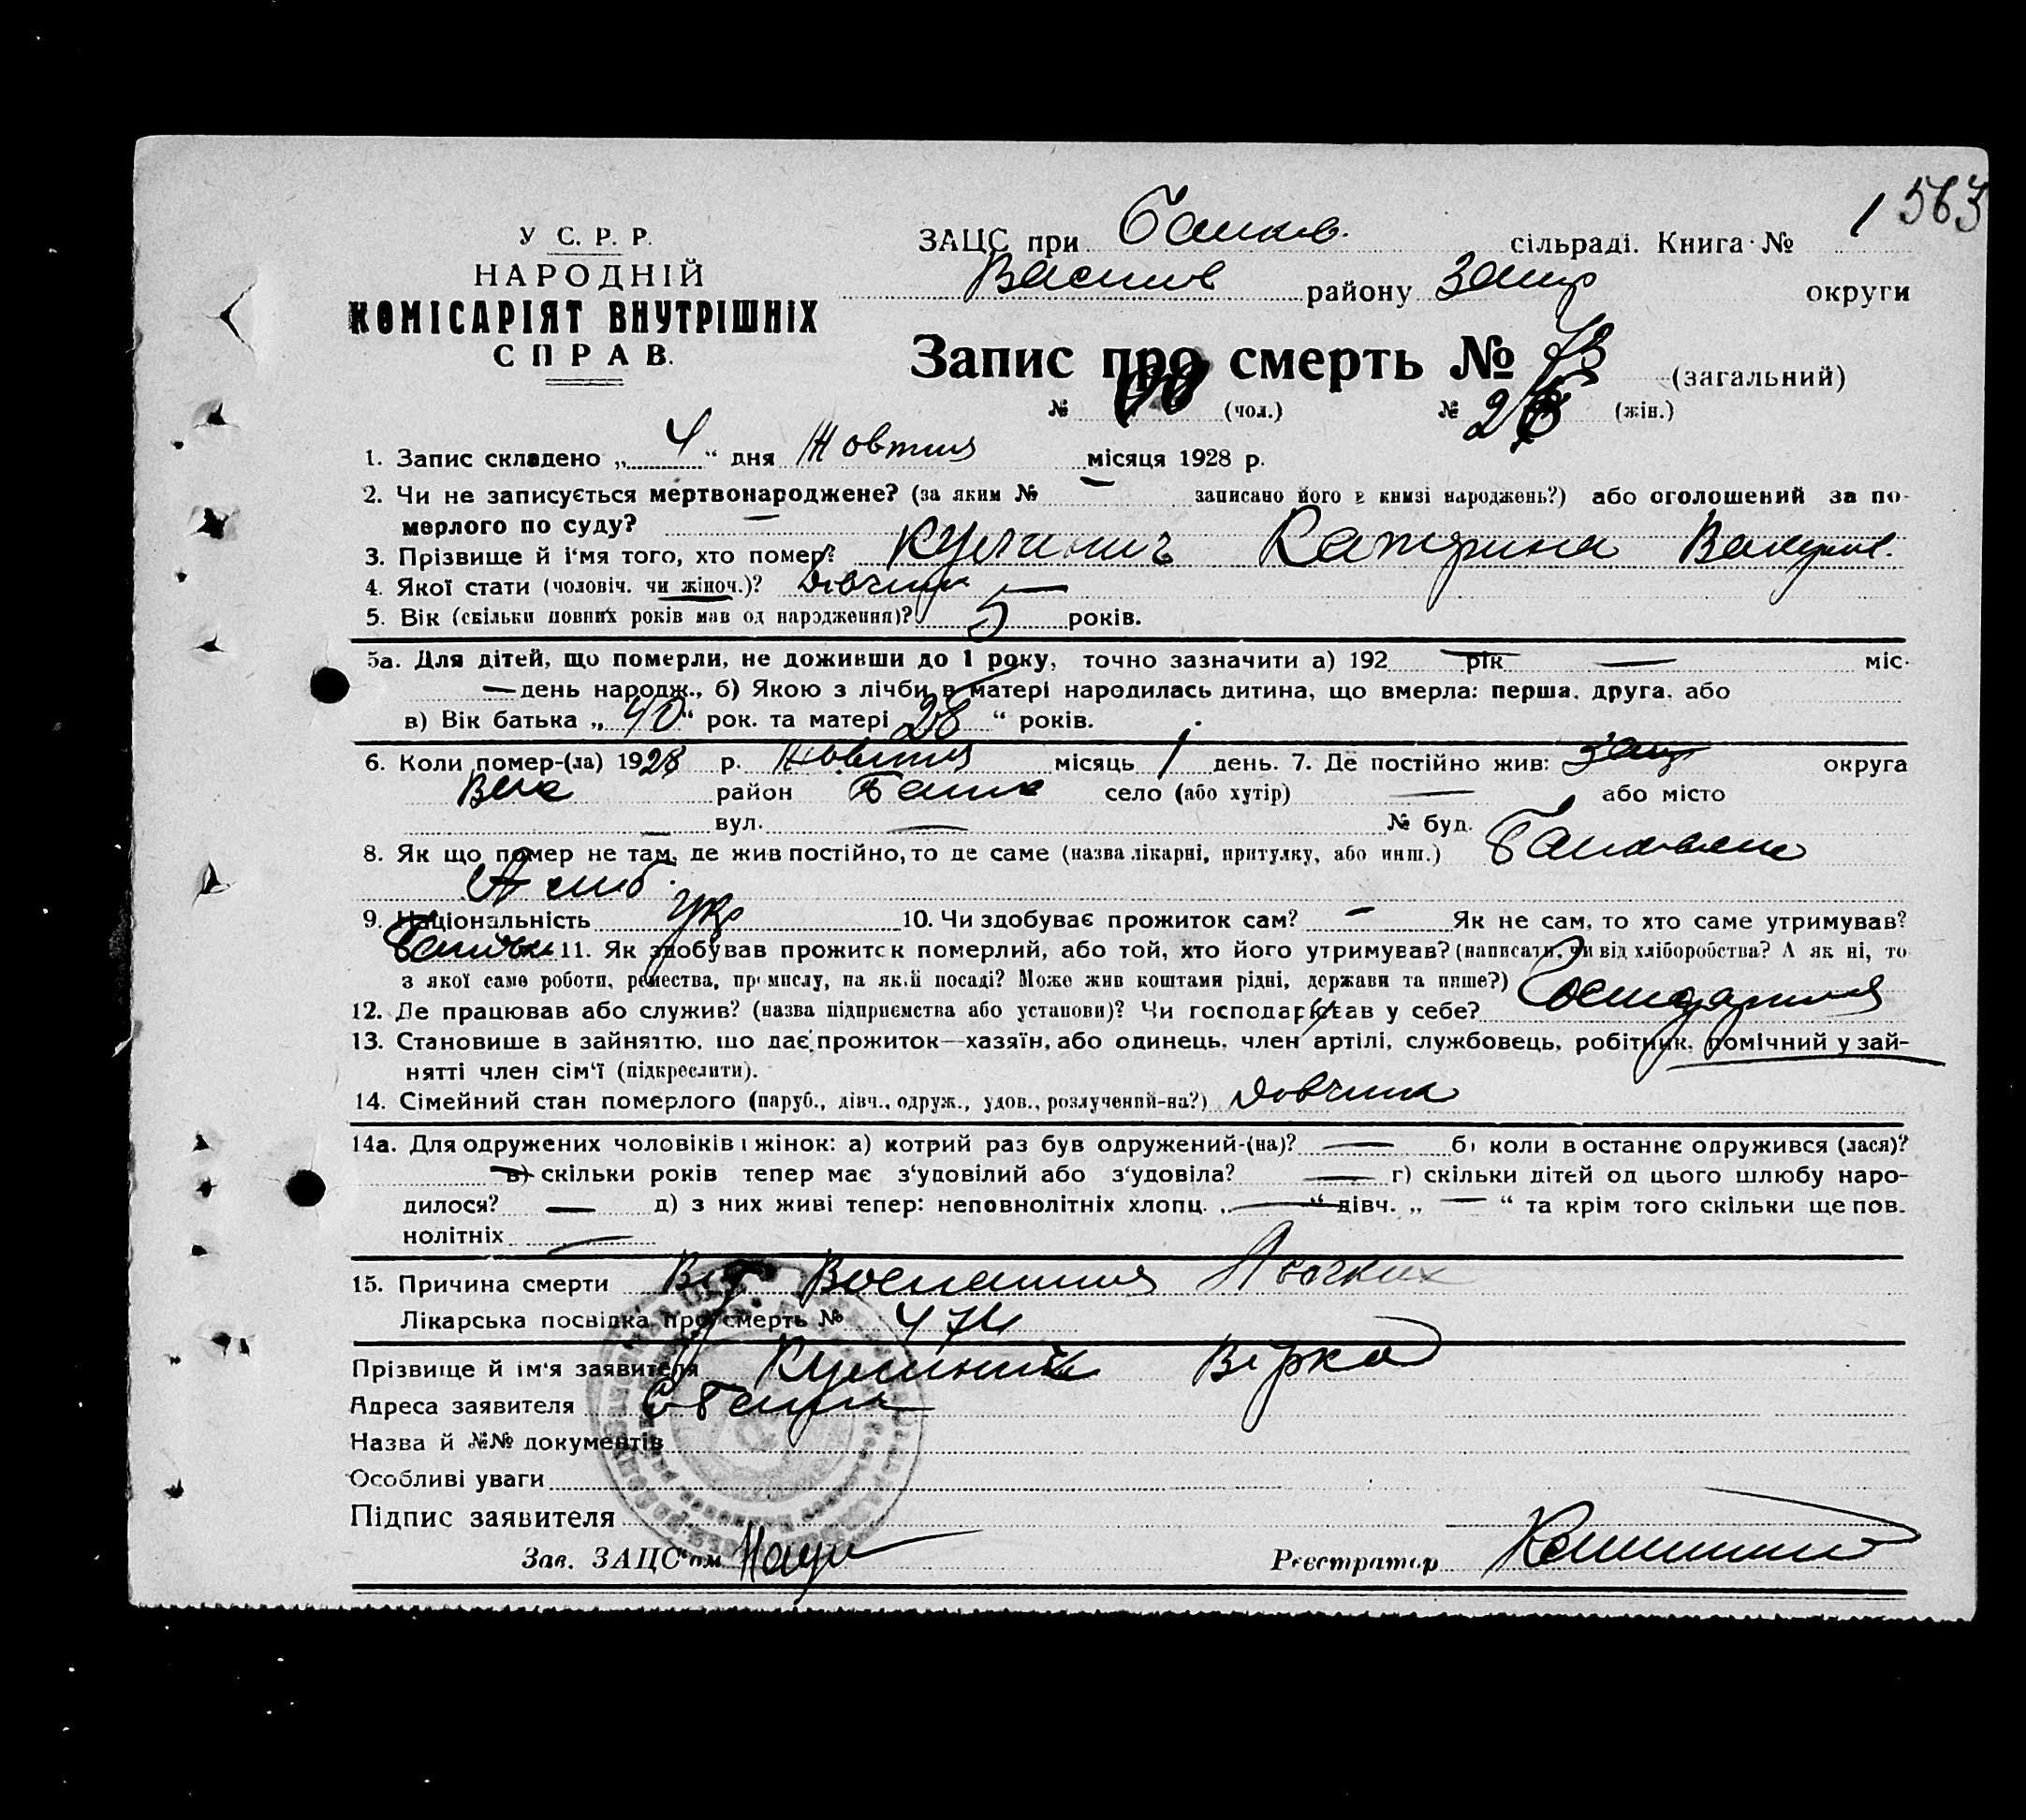 563
У С. Р. Р.
НАРОДНІЙ
КОМІСАРІЯТ ВНУТРІШНІХ
СПРАВ.
ЗАЦС при сільраді. Книга № 1
Васил району Запор округи
Запис про смерть № 73 (загальний)
№ (чол.) № (жін.)
1. Запис складено „ 4 “ дня Жовтня місяця 1928 р.
2. Чи не записується мертвонароджене? (за яким № — записано його в книзі народжень?) або оголошений за по-
мерлого по суду? —
3. Прізвище й і'мя того, хто помер? Катерина
4. Якої стати (чоловіч. чи жіноч.)? дівчина
5. Вік (скільки повних років мав од народження)? 5 років.
5а. Для дітей, що померли, не доживши до 1 року, точно зазначити а) 192 рік — міс.
— день народж., б) Якою з лічби в матері народилась дитина, що вмерла: перша, друга, або
в) Вік батька „ 40 “ рок. та матері 28 “ років.
6. Коли помер-(ла) 1928 р. Жовтня місяць 1 день. 7. Де постійно жив: Запор округа
район село (або хутір) — або місто
— вул. — № буд.
8. Як що помер не там, де жив постійно, то де саме (назва лікарні, притулку, або инш.)
Амб.
9. Національність Укр 10. Чи здобуває прожиток сам? — Як не сам, то хто саме утримував?
Батько 11. Як здобував прожиток померлий, або той, хто його утримував? (написати, чи від хліборобства? А як ні, то
з якої саме роботи, ремества, промислу, на якій посаді? Може жив коштами рідні, держави та инше?)
12. Де працював або служив? (назва підприємства або установи)? Чи господарював у себе?
13. Становище в зайняттю, що дає прожиток—хазяїн, або одинець, член артілі, службовець, робітник, помічний у зай-
нятті член сім'ї (підкреслити).
14. Сімейний стан померлого (паруб., дівч., одруж., удов., розлучений-на?) дівчина
14а. Для одружених чоловіків і жінок: а) котрий раз був одружений-(на)? — б) коли в останнє одружився (лася)?
в) скільки років тепер має з'удовілий або з'удовіла? — г) скільки дітей од цього шлюбу наро-
дилося? — д) з них живі тепер: неповнолітніх хлопц. „ — “ дівч. „ — “ та крім того скільки ще пов.
нолітніх —
15. Причина смерти Від Воспаления Лёгких
Лікарська посвідка про смерть № 474
Прізвище й ім'я заявителя
Адреса заявителя
Назва й №№ документів
Особливі уваги
Підпис заявителя
Зав. ЗАЦС'ом Реєстратор